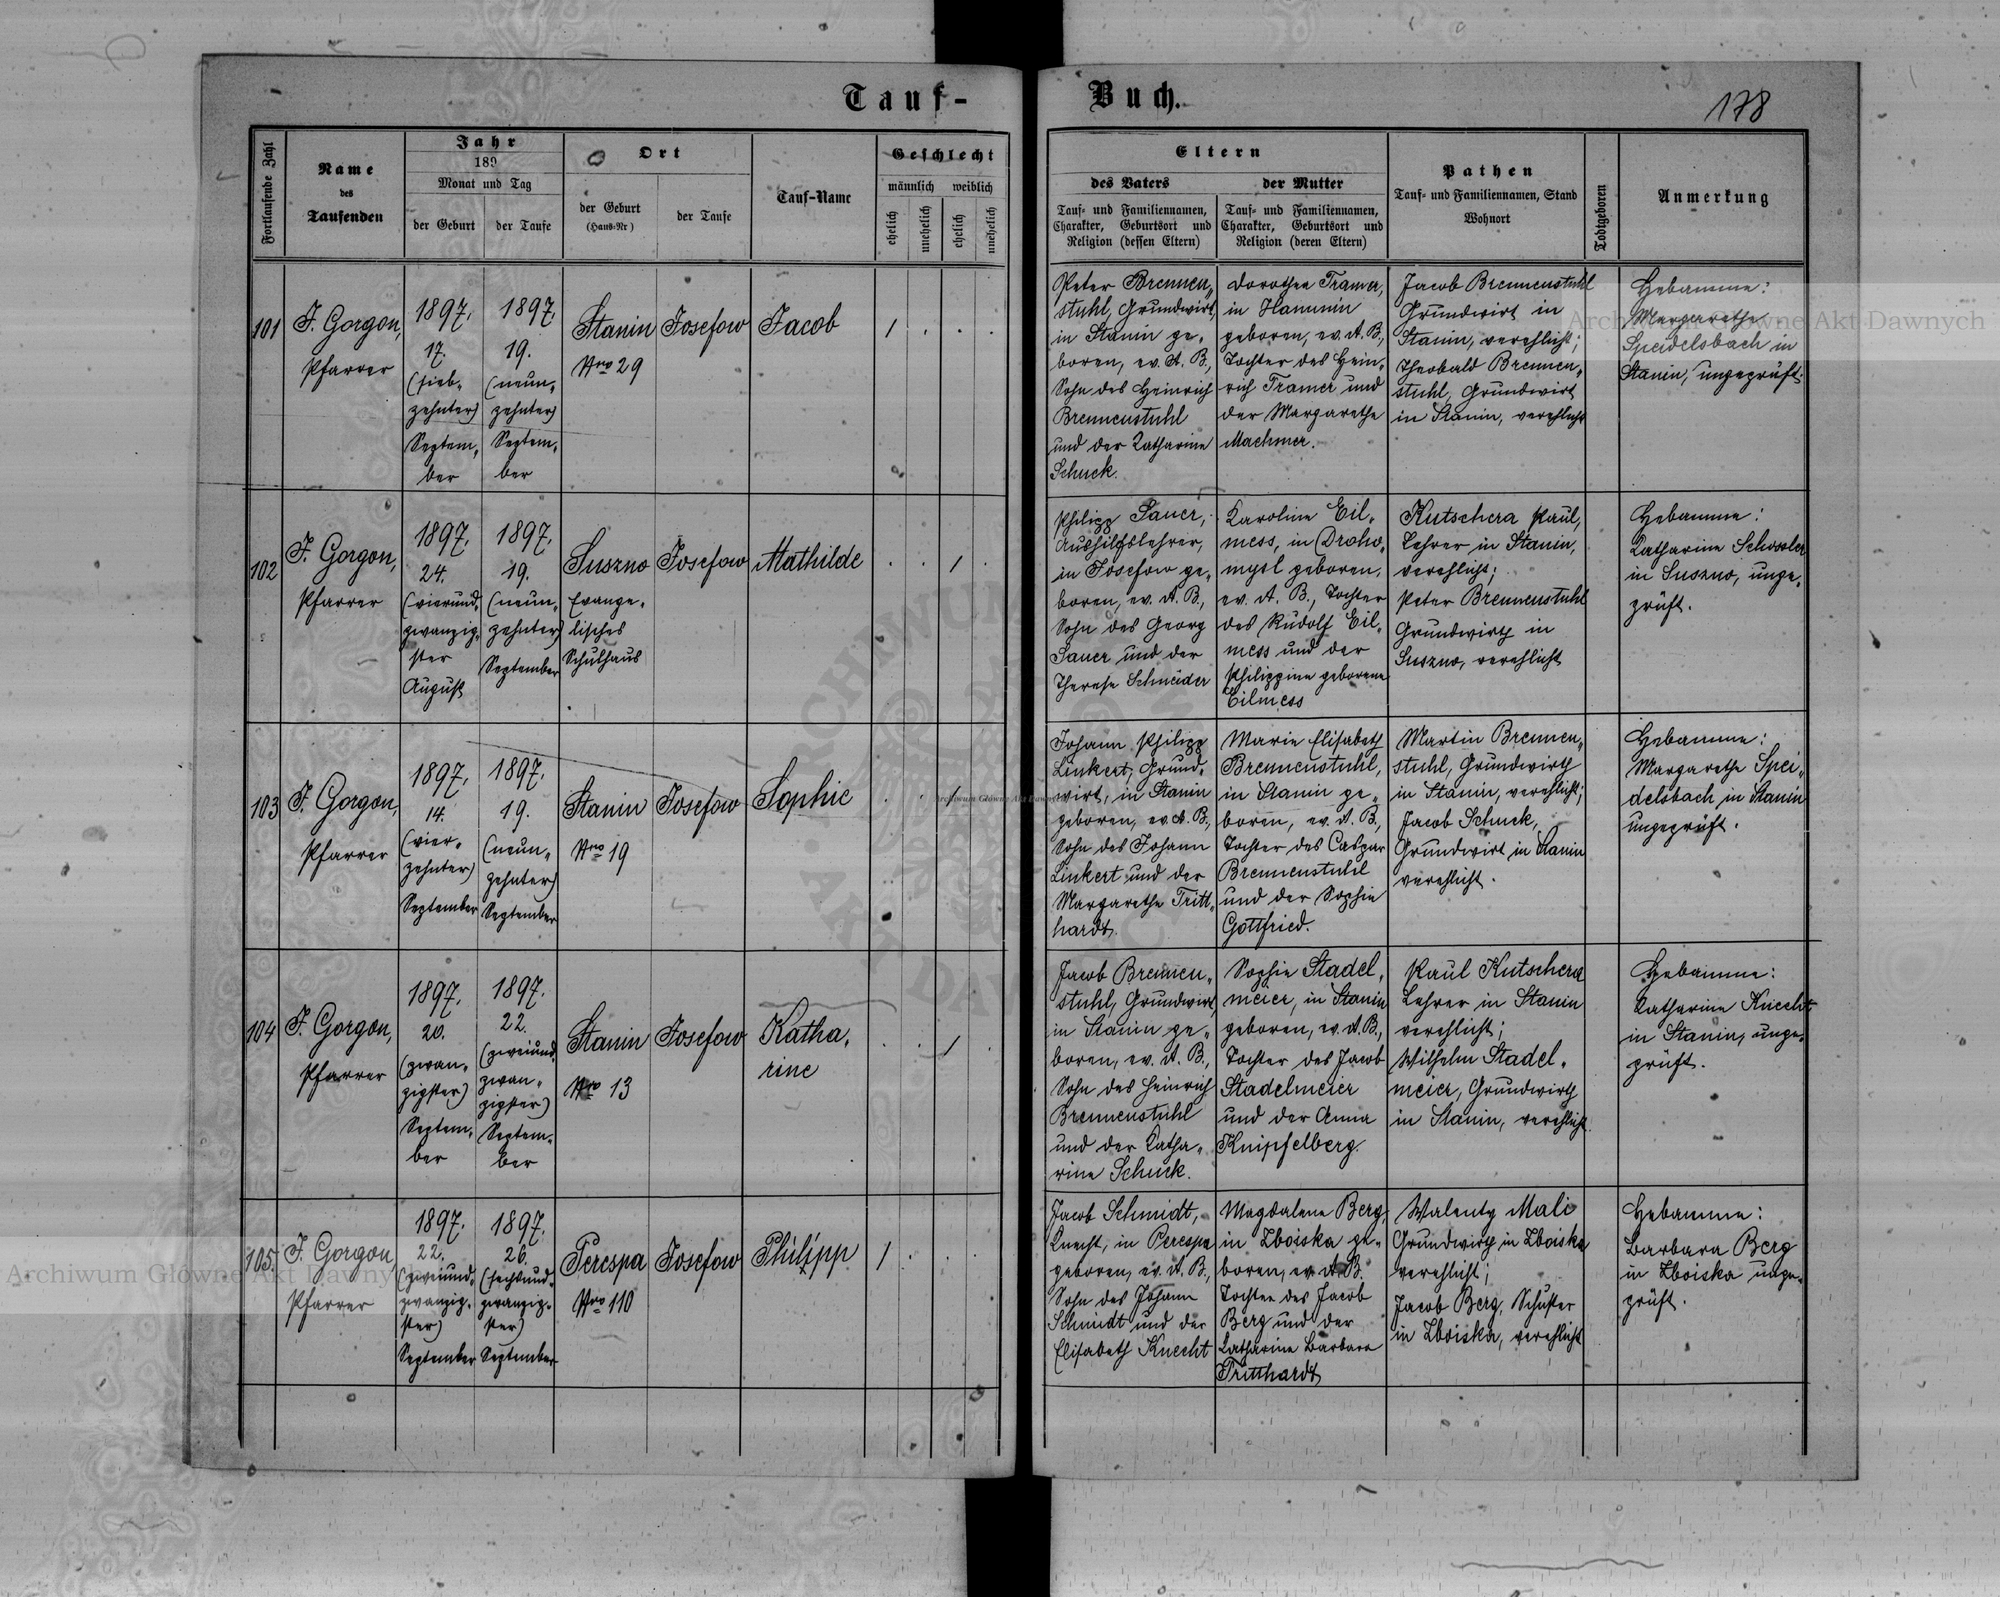 Tauf-
Buch.
178
Fortlaufende Zahl
Name
des
Taufenden
Jahr
189
Monat und Tag
der Geburt
der Taufe
Ort
der Geburt
(Haus-Nr)
der Taufe
Tauf-Name
Geschlecht
männlich weiblich
ehelich
unehelich
ehelich
unehelich
Eltern
des Vaters
der Mutter
Tauf- und Familiennamen,
Charakter, Geburtsort und
Religion (dessen Eltern)
Tauf- und Familiennamen,
Charakter, Geburtsort und
Religion (deren Eltern)
Pathen
Tauf- und Familiennamen, Stand
Wohnort
Todtgeboren
Anmerkung
101
F. Gorgon,
Pfarrer
1897.
17.
(sieb-
zehnter)
Septem-
ber
1897.
19.
(neun-
zehnter)
Septem-
ber
Stanin
Nro 29
Josefow
Jacob
1 . . .
Peter Brennen-
stuhl, Grundwirt,
in Stanin ge-
boren, ev. A. B.,
Sohn des Heinrich
Brennenstuhl
und der Katharine
Schuck.
Dorothea Tramer,
in Hanunin
geboren, ev. A. B.,
Tochter des Hein-
rich Tramer und
der Margarethe
Machmer.
Jacob Brennenstuhl
Grundwirt in
Stanin, verehlicht;
Theobald Brennen-
stuhl, Grundwirt
in Stanin, verehlicht
Hebamme:
Margarethe
Speidelsbach in
Stanin, ungeprüft.
102
F. Gorgon,
Pfarrer
1897.
24.
(vierund-
zwanzig-
ster
August
1897.
19.
(neun-
zehnter)
September
Suszno
Evange-
lisches
Schulhaus
Josefow
Mathilde
. . 1 .
Philipp Sauer,
Aushilfslehrer,
in Josefow ge-
boren, ev. A. B.,
Sohn des Georg
Sauer und der
Therese Schneider
Karoline Eil-
mess, in Droho-
mysl geboren,
ev. A. B., Tochter
des Rudolf Eil-
mess und der
Philippine geborene
Eilmess
Kutschera Paul,
Lehrer in Stanin,
verehlicht;
Peter Brennenstuhl
Grundwirth in
Suszno, verehlicht
Hebamme:
Katharine Schossler
in Suszno, unge-
prüft.
103
F. Gorgon,
Pfarrer
1897.
14.
(vier-
zehnter)
September
1897.
19.
(neun-
zehnter)
September
Stanin
Nro 19
Josefow
Sophie
. . 1 .
Johann Philipp
Linkert, Grund-
wirt, in Stanin
geboren, ev. A. B.,
Sohn des Johann
Linkert und der
Margarethe Tritt-
hardt.
Marie Elisabeth
Brennenstuhl,
in Stanin ge-
boren, ev. A. B.,
Tochter des Caspar
Brennenstuhl
und der Sophie
Gottfried.
Martin Brennen-
stuhl, Grundwirth
in Stanin, verehlicht;
Jacob Schuck,
Grundwirt in Stanin
verehlicht.
Hebamme:
Margarethe Spei-
delsbach in Stanin
ungeprüft.
104
F. Gorgon,
Pfarrer
1897.
20.
(zwan-
zigster)
Septem-
ber
1897.
22.
(zweiund-
zwan-
zigster)
Septem-
ber
Stanin
Nro 13
Josefow
Katha-
rine
. . 1 .
Jacob Brennen-
stuhl, Grundwirt,
in Stanin ge-
boren, ev. A. B.,
Sohn des Heinrich
Brennenstuhl
und der Katha-
rine Schuck.
Sophie Stadel-
meier, in Stanin
geboren, ev. A. B.,
Tochter des Jacob
Stadelmeier
und der Anna
Knipfelberg.
Paul Kutschera
Lehrer in Stanin
verehlicht;
Wilhelm Stadel-
meier, Grundwirth
in Stanin, verehlicht.
Hebamme:
Katharine Knecht
in Stanin, unge-
prüft.
105.
F. Gorgon,
Pfarrer
1897.
22.
(zweiund-
zwanzig-
ster)
September
1897.
26.
(sechsund-
zwanzig-
ster)
September
Perespa
Nro 110
Josefow
Philipp
1 . . .
Jacob Schmidt,
Knecht, in Perespa
geboren, ev. A. B.,
Sohn des Johann
Schmidt und der
Elisabeth Knecht
Magdalene Berg,
in Zboiska ge-
boren, ev. A. B.
Tochter des Jacob
Berg und der
Katharine Barbara
Tritthardt
Walenty Mali
Grundwirth in Zboiska
verehlicht;
Jacob Berg, Schuster
in Zboiska, verehlicht
Hebamme:
Barbara Berg
in Zboiska unge-
prüft.
Archiwum Główne Akt Dawnych
Archiwum Główne Akt Dawnych
Archiwum Główne Akt Dawnych